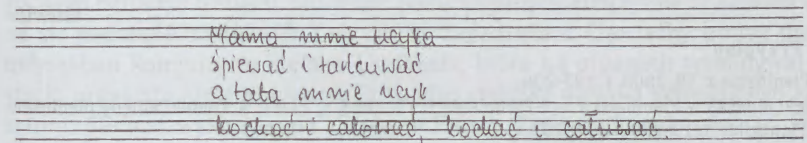 Mama mnie ucyła
śpiewać i tańcuwać
a tata mnie ucył
kochać i całować, kochać i całuwać.